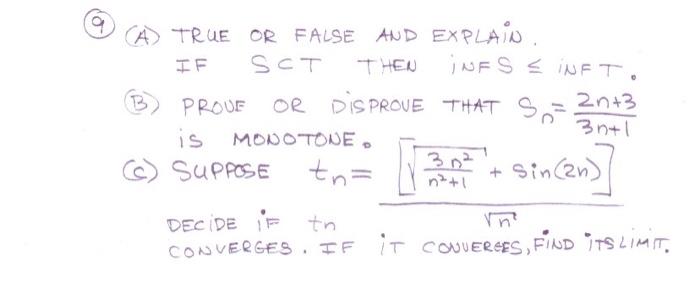 9 (A) TRUE OR FALSE AND EXPLAIN.
IF S⊂T THEN INF S ≤ INF T.
(B) PROVE OR DISPROVE THAT Sn = 2n+3 / 3n+1
is MONOTONE.
(C) SUPPOSE tn = [√(3n²/n²+1) + sin(2n)] / √n
DECIDE iF tn
CONVERGES. IF iT CONVERGES, FiND iTS LIMIT.